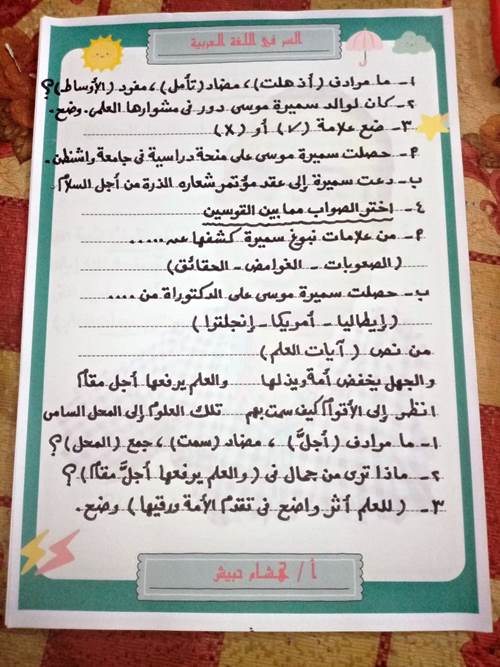 السر في اللغة العربية
١- ما مرادف (أذهلت)، مضاد (تأمل)، مفرد (الأوساط)؟
٢- كان لوالد سميرة موسى دور في مشوارها العلمي. وضح.
٣- ضع علامة (✓) أو (X)
أ- حصلت سميرة موسى على منحة دراسية في جامعة واشنطن.
ب- دعت سميرة إلى عقد مؤتمر شعاره الذرة من أجل السلام
٤- اختر الصواب مما بين القوسين
أ- من علامات نبوغ سميرة كشفها عن.....
(الصعوبات - الغوامض - الحقائق)
ب- حصلت سميرة موسى على الدكتوراة من ....
(إيطاليا - أمريكا - إنجلترا)
من نص (آيات العلم)
والجهل يخفض أمة ويذلها والعلم يرفعها أجل مقاما
انظر إلى الأقوام كيف سمت بهم تلك العلوم إلى المحل السامى
١- ما مرادف (أجلَّ)، مضاد (سمت)، جمع (المحل)؟
٢- ماذا ترى من جمال فى (والعلم يرفعها أجلَّ مقاما)؟
٣- (للعلم أثر واضح في تقدم الأمة ورقيها) وضح.
أ / هشام حبيش